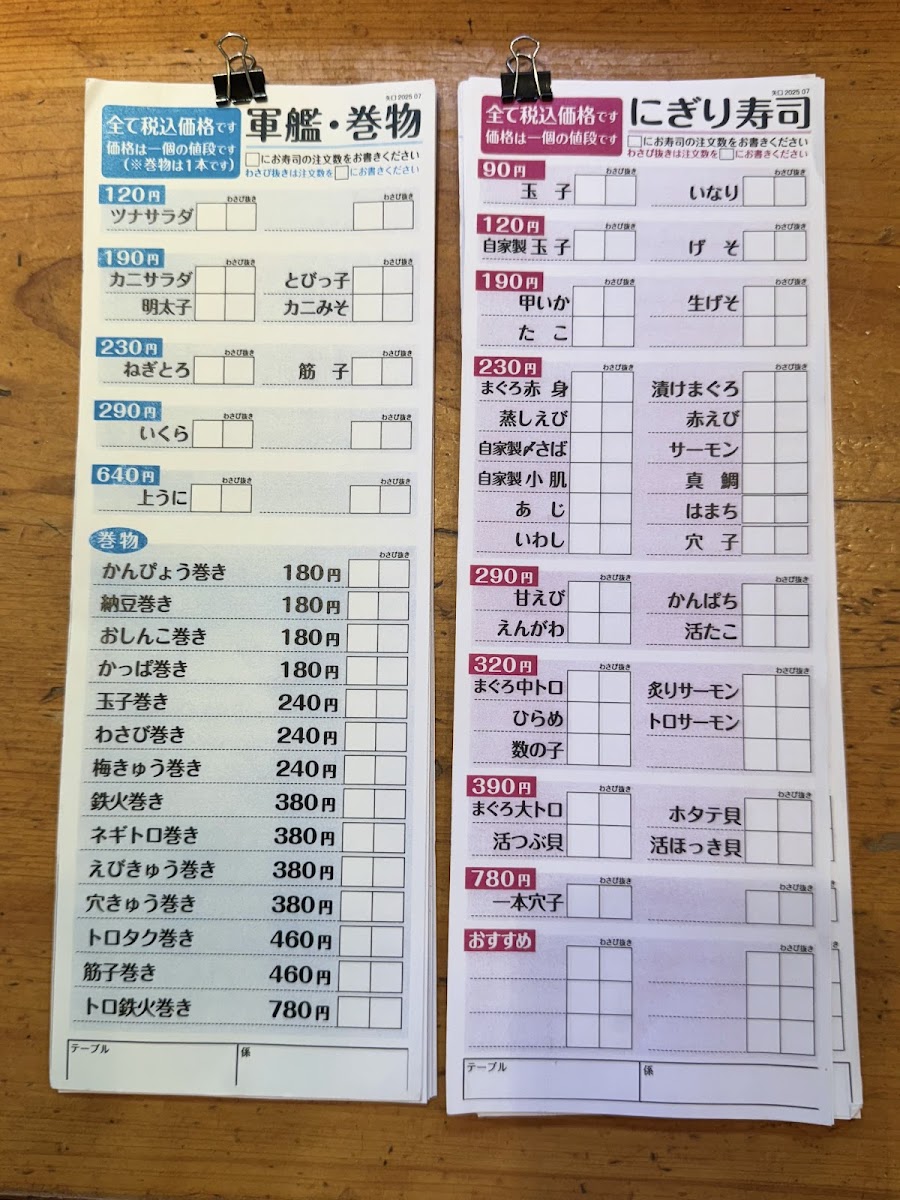 矢口 2025 07
全て税込価格です
価格は一個の値段です
(※巻物は1本です)
軍艦・巻物
□にお寿司の注文数をお書きください
わさび抜きは注文数を□にお書きください
120円 わさび抜き わさび抜き
ツナサラダ
190円 わさび抜き わさび抜き
カニサラダ とびっ子
明太子 カニみそ
230円 わさび抜き わさび抜き
ねぎとろ 筋 子
290円 わさび抜き わさび抜き
いくら
640円 わさび抜き わさび抜き
上うに
巻物 わさび抜き
かんぴょう巻き 180円
納豆巻き 180円
おしんこ巻き 180円
かっぱ巻き 180円
玉子巻き 240円
わさび巻き 240円
梅きゅう巻き 240円
鉄火巻き 380円
ネギトロ巻き 380円
えびきゅう巻き 380円
穴きゅう巻き 380円
トロタク巻き 460円
筋子巻き 460円
トロ鉄火巻き 780円
テーブル 係
矢口 2025 07
全て税込価格です
価格は一個の値段です
にぎり寿司
□にお寿司の注文数をお書きください
わさび抜きは注文数を□にお書きください
90円 わさび抜き わさび抜き
玉 子 いなり
120円 わさび抜き わさび抜き
自家製 玉 子 げ そ
190円 わさび抜き わさび抜き
甲いか 生げそ
た こ
230円 わさび抜き わさび抜き
まぐろ赤 身 漬けまぐろ
蒸しえび 赤えび
自家製〆さば サーモン
自家製 小 肌 真 鯛
あ じ はまち
いわし 穴 子
290円 わさび抜き わさび抜き
甘えび かんぱち
えんがわ 活たこ
320円 わさび抜き わさび抜き
まぐろ中トロ 炙りサーモン
ひらめ トロサーモン
数の子
390円 わさび抜き わさび抜き
まぐろ大トロ ホタテ貝
活つぶ貝 活ほっき貝
780円 わさび抜き わさび抜き
一本穴子
おすすめ わさび抜き わさび抜き
テーブル 係